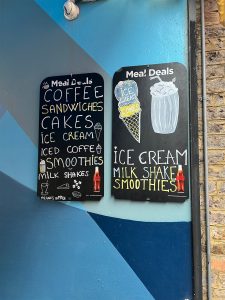 Meal Deals
COFFEE
SANDWICHES
CAKES
iCE CREAM
iCED COFFEE
SMOOTHIES
MiLK SHAKES
Meal Deals
iCE CREAM
MiLK SHAKE
SMOOTHIES